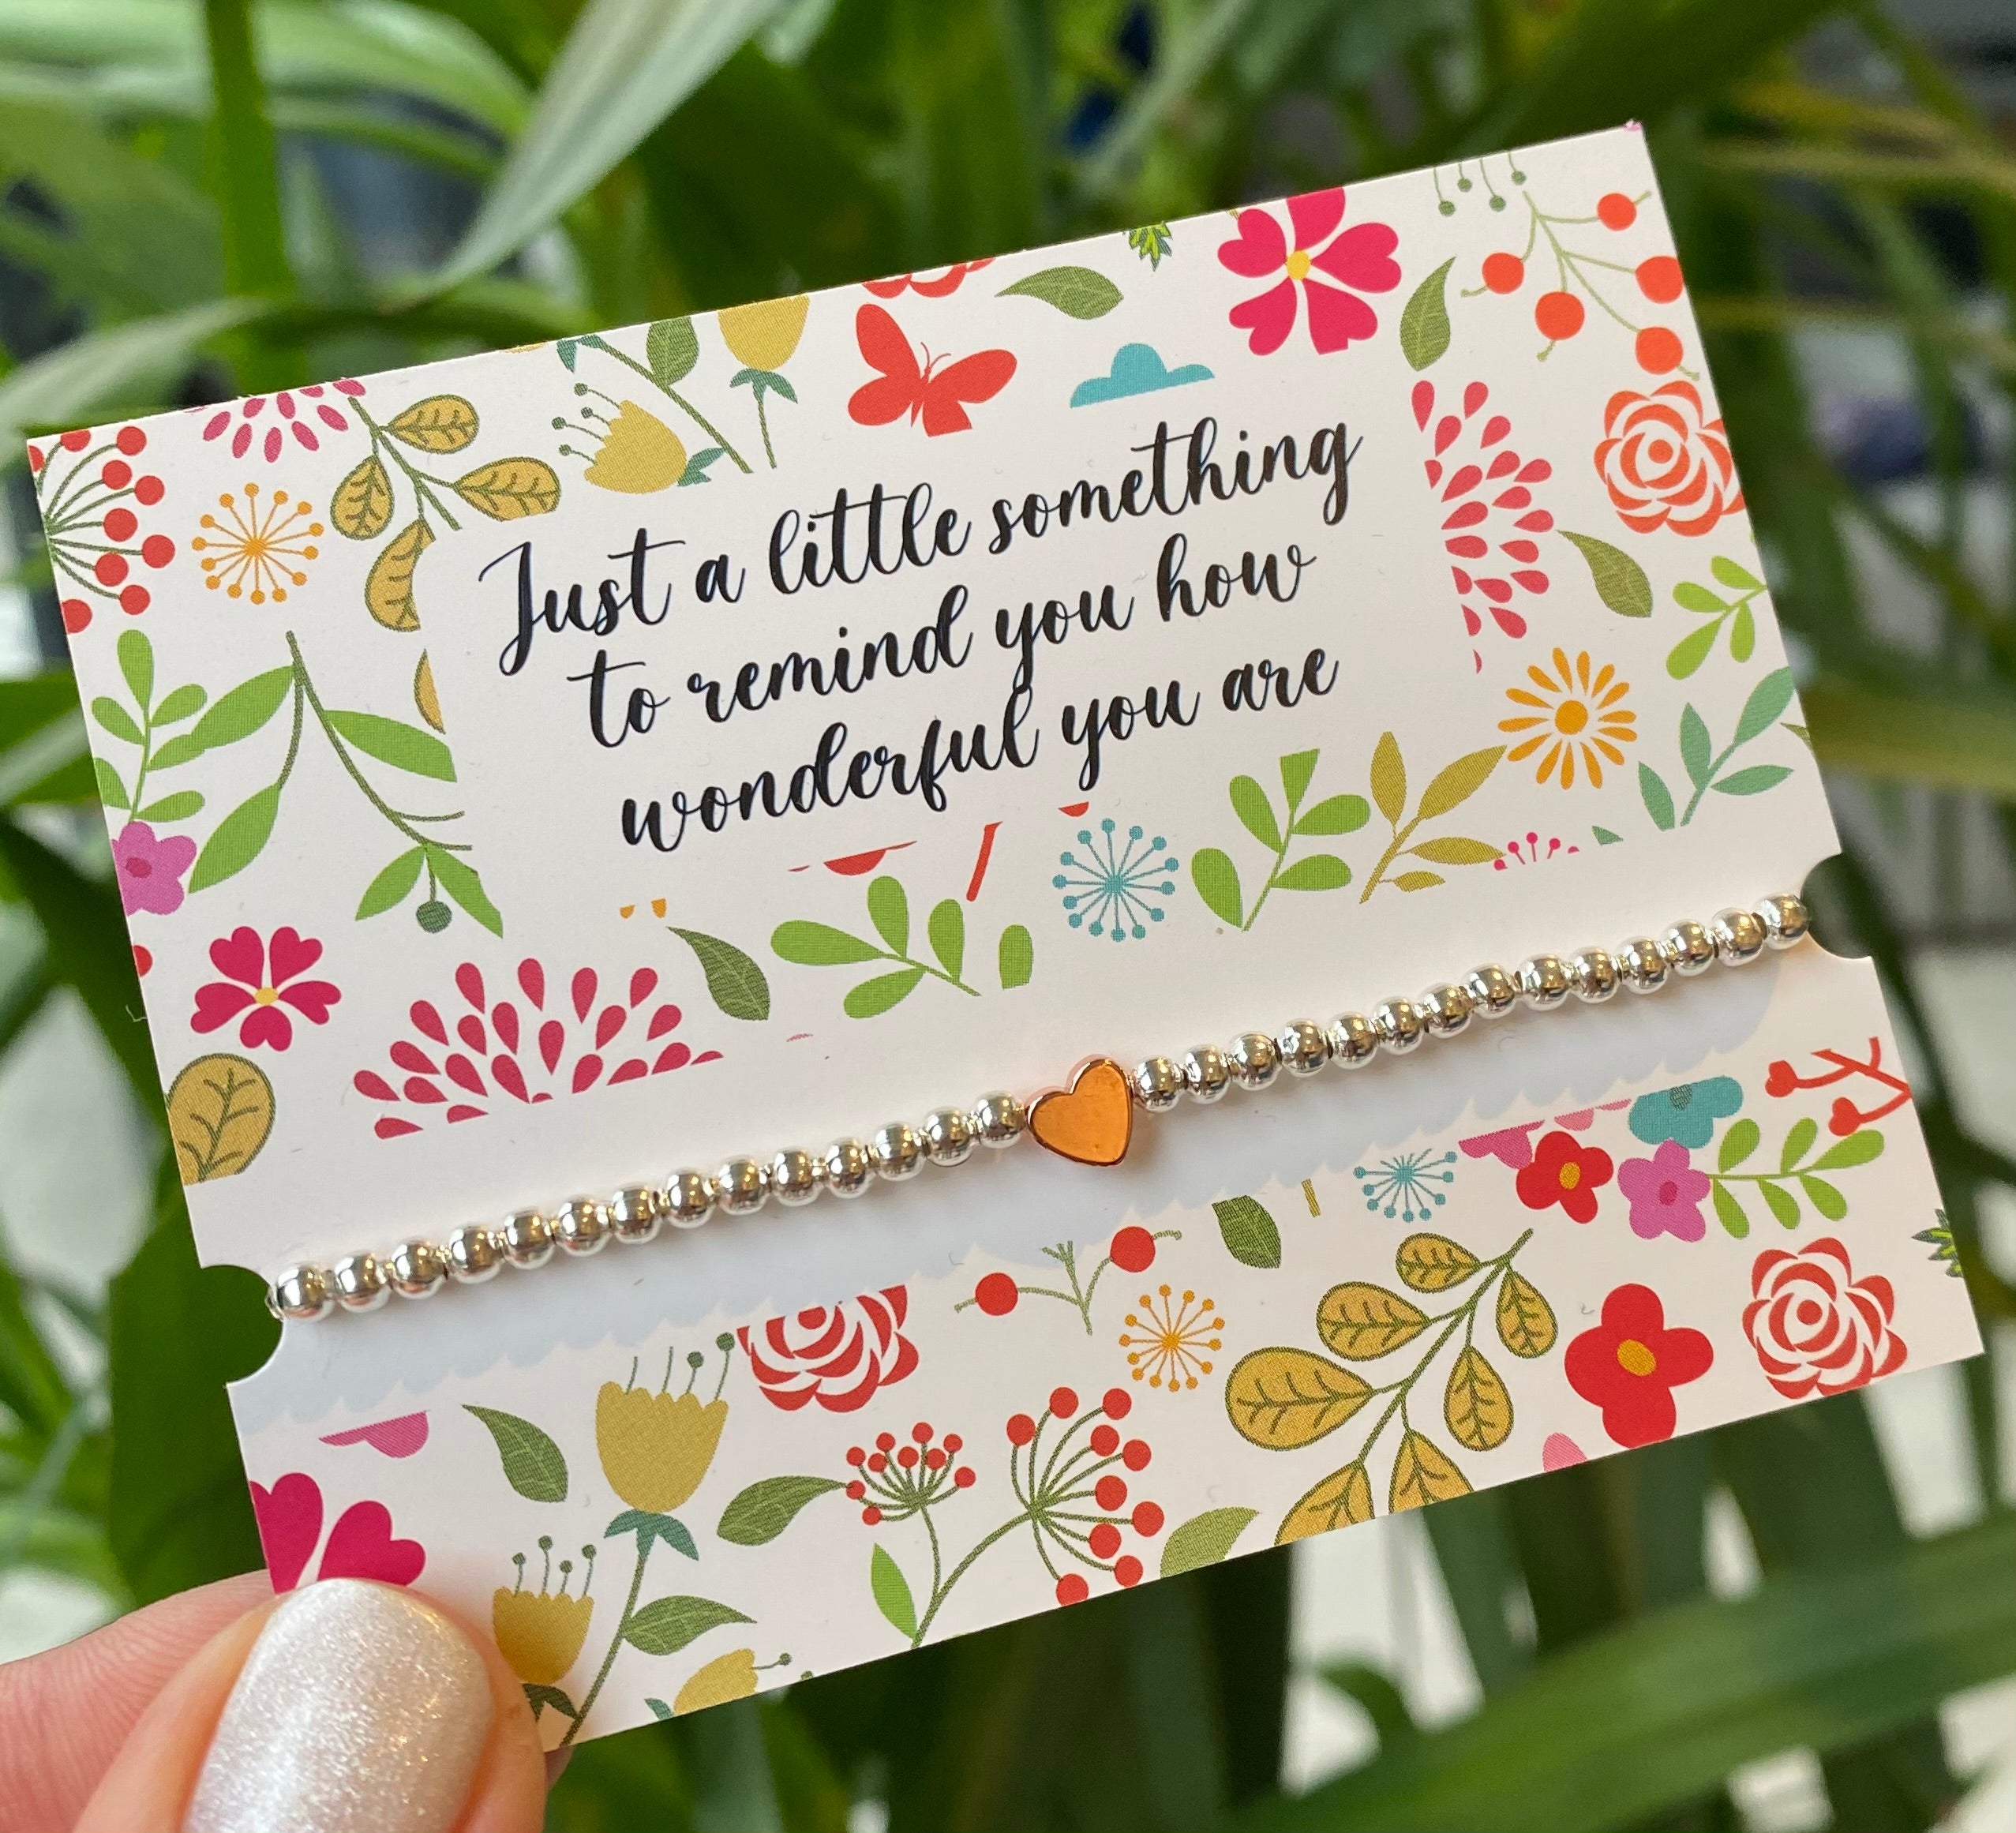 Just a little something
to remind you how
wonderful you are